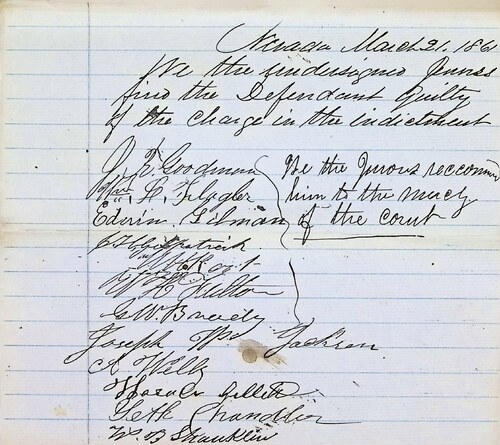 Nevada March 21, 186
We the undersigned Jurors
find the Defendant Guilty
of the charge in the indictment
We the Jurors reccomm
him to the mercy
of the court
J. R. Goodman
Wm. H.
Edwin Gilman
W. H. Fulton
G. W. Brady
Joseph Wm Jackson
A Wells
Horace Gillett
Seth Chandler
W. B. Shanklin